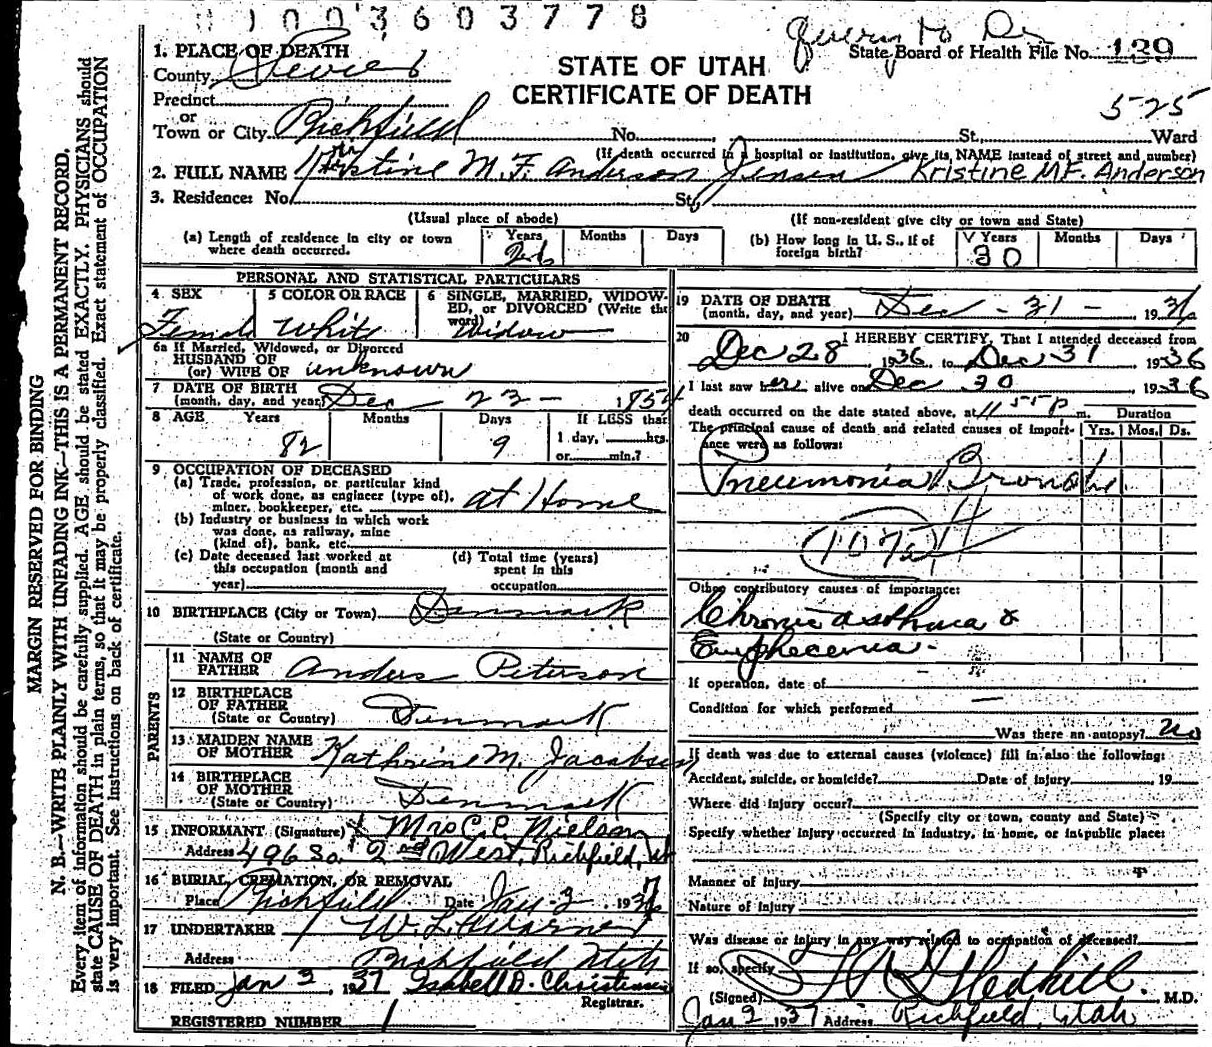 1003603778
Query to Dr
State Board of Health File No. 139
STATE OF UTAH
CERTIFICATE OF DEATH
525
1. PLACE OF DEATH
County Sevier 6
Precinct
or
Town or City Richfield No. St. Ward
(If death occurred in a hospital or institution, give its NAME instead of street and number)
2. FULL NAME Kirstine M. F. Anderson Jensen Kristine M.F. Anderson
3. Residence: No. St.
(Usual place of abode) (If non-resident give city or town and State)
(a) Length of residence in city or town where death occurred. Years 26 Months Days
(b) How long in U. S., if of foreign birth? Years 30 Months Days
PERSONAL AND STATISTICAL PARTICULARS
4 SEX Female
5 COLOR OR RACE White
6 SINGLE, MARRIED, WIDOWED, or DIVORCED (Write the word) Widow
6a If Married, Widowed, or Divorced
HUSBAND OF
(or) WIFE OF unknown
7 DATE OF BIRTH
(month, day, and year) Dec 23 - 1854
8 AGE Years 82 Months Days 9 If LESS than
1 day, hrs.
or min.?
9 OCCUPATION OF DECEASED
(a) Trade, profession, or particular kind
of work done, as engineer (type of),
miner, bookkeeper, etc. at Home
(b) Industry or business in which work
was done, as railway, mine
(kind of), bank, etc.
(c) Date deceased last worked at
this occupation (month and
year)
(d) Total time (years)
spent in this
occupation
10 BIRTHPLACE (City or Town) Denmark
(State or Country)
PARENTS
11 NAME OF
FATHER Anders Peterson
12 BIRTHPLACE
OF FATHER
(State or Country) Denmark
13 MAIDEN NAME
OF MOTHER Kathrine M. Jacobsen
14 BIRTHPLACE
OF MOTHER
(State or Country) Denmark
15 INFORMANT (Signature) Mrs C. E. Nielson
Address 496 So. 2nd West, Richfield, Ut
16 BURIAL, CREMATION, OR REMOVAL
Place Richfield Date Jan - 3 1937
17 UNDERTAKER W. L. Warner
Address Richfield Utah
18 FILED Jan 3 1937 Isabell D. Christensen
Registrar.
REGISTERED NUMBER 1
19 DATE OF DEATH
(month, day, and year) Dec - 31 - 1936
20 I HEREBY CERTIFY, That I attended deceased from
Dec 28 1936 to Dec 31 1936
I last saw her alive on Dec 30 1936
death occurred on the date stated above, at 11 55 P m.
The principal cause of death and related causes of importance were as follows:
Duration
Yrs. Mos. Ds.
Pneumonia Bronchi
107a
Other contributory causes of importance:
Chronic asthma &
Emphecema
If operation, date of
Condition for which performed
Was there an autopsy? no
If death was due to external causes (violence) fill in also the following:
Accident, suicide, or homicide? Date of injury 19
Where did injury occur?
(Specify city or town, county and State)
Specify whether injury occurred in industry, in home, or in public place:
Manner of injury
Nature of injury
Was disease or injury in any way related to occupation of deceased?
If so, specify
(Signed) Gledhill M.D.
Jan 2 1937 Address Richfield, Utah
MARGIN RESERVED FOR BINDING
N. B.—WRITE PLAINLY WITH UNFADING INK—THIS IS A PERMANENT RECORD.
Every item of information should be carefully supplied. AGE should be stated EXACTLY. PHYSICIANS should
state CAUSE OF DEATH in plain terms, so that it may be properly classified. Exact statement of OCCUPATION
is very important. See instructions on back of certificate.